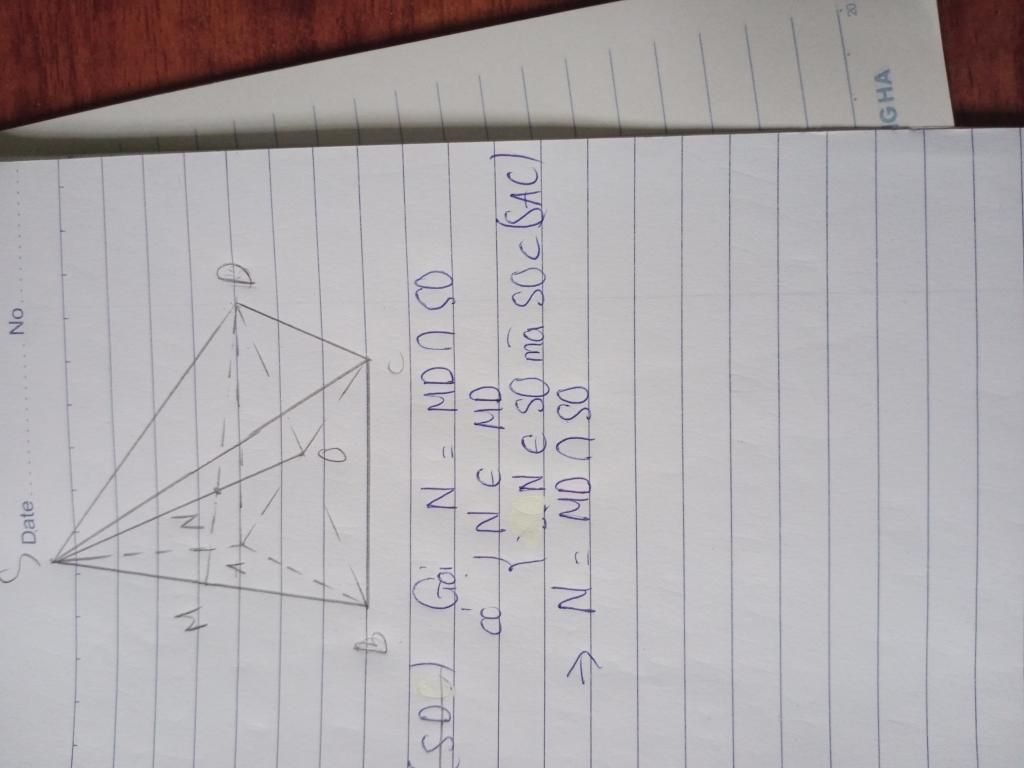 Date No
S
M N A D
B O C
(SD Gọi N = MD ∩ SO
có { N ∈ MD
N ∈ SO mà SO ⊂ (SAC)
⇒ N = MD ∩ SO
GHA
20